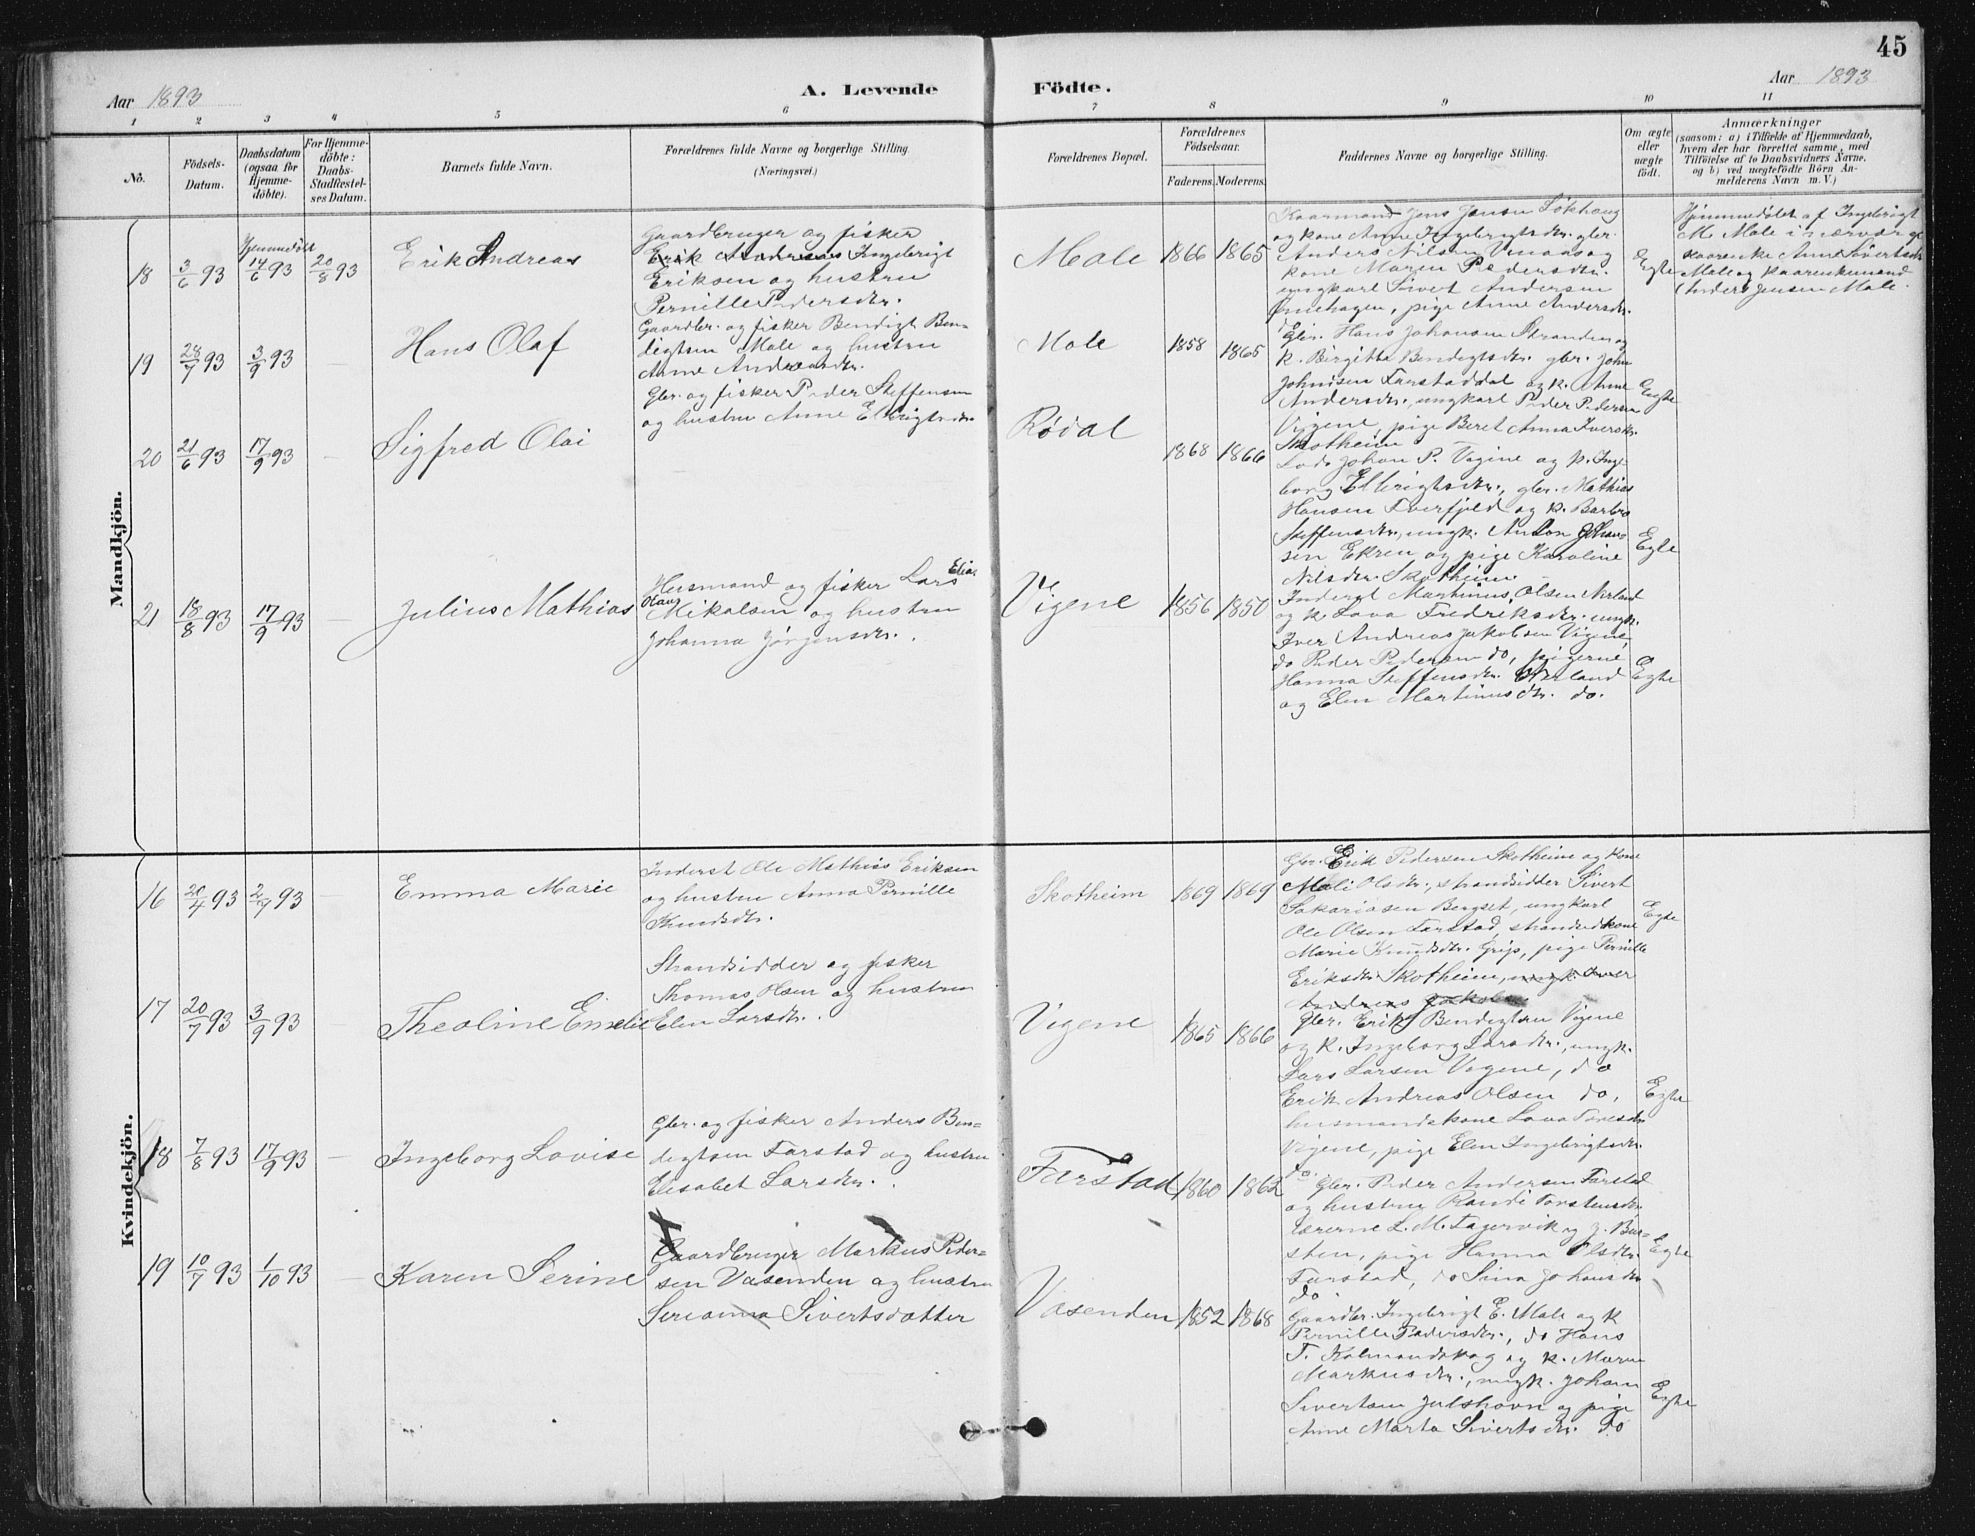 45
Aar 1893
A. Levende
Födte.
Aar 1893
1 2 3 4 5 6 7 8 9 10 11
No.
Födsels-
Datum.
Daabsdatum
(ogsaa for
Hjemme-
döbte).
For Hjemme-
döbte:
Daabs-
Stadfæstel-
ses Datum.
Barnets fulde Navn.
Forældrenes fulde Navne og borgerlige Stilling
(Næringsvei.)
Forældrenes Bopæl.
Forældrenes
Födselsaar.
Faderens. Moderens.
Faddernes Navne og borgerlige Stilling.
Om ægte
eller
uægte
födt.
Anmærkninger
(saasom: a) i Tilfælde af Hjemmedaab,
hvem der har forrettet samme, med
Tilföielse af to Daabsvidners Navne.
og b) ved uægtefödte Börn An-
melderens Navn m. V.)
Mandkjön.
18
3/6 93
Hjemmedøbt
14/6 93
20/8 93
Erik Andreas
Gaardbruger og fisker
Erik Andreas Ingebrigt
Eriksen og hustru
Pernille Pedersdtr.
Male
1866 1865
Kaarmand Jens Jensen Sökhaug
og kone Anne Ingebrigtsdtr. gbr.
Anders Nilsen og
kone Maren Pedersdtr.
ungkarl Sivert Andersen
pige Anne Andersdtr.
do
Egte
Hjemmedöbt af Ingebrigt
M. Male i nærvær af
kaarenke Anne Sivertsdtr
Male og kaarenkemand
Anders Jensen Male.
19
28/7 93
3/9 93
Hans Olaf
Gaardbr. og fisker Bendigt Ben-
digtsen Male og hustru
Anne Andreasdtr.
Male
1858 1865
Gbr. Hans Johansen Stranden og
k. Birgitha Bendigtsdtr. gbr. John
Johnsen Farstaddal og k. Anne
Andersdtr., ungkarl Peder Pedersen
Vigene, pige Beret Anna Iversdtr.
Skotheim
Egte
20
21/6 93
17/9 93
Sigfred Olai
Gbr. og fisker Peder Steffensen
og hustru Anne Ellingsdtr.
Rödal
1868 1866
Lods Johan P. Vigine og k. Inge-
borg Ellingsdtr., gbr. Mathias
Hansen Tverfjeld og k. Barbro
Steffensdtr., ungk. Anton Johan-
sen Ekren og pige Karoline
Nilsdtr. Skotheim.
Egte
21
18/8 93
17/9 93
Julius Mathias
Husmand og fisker Lars Elias
Olaus
Mikalsen og hustru
Johanna Jörgensdtr.
Vigene
1856 1850
Inderst Martinus Olsen Nerland
og k. Lava Fredriksdtr. ungk.
Iver Andreas Jakobsen Vigene,
do Peder Pedersen do, pigerne
Hanna Steffensdtr. Nerland
og Elen Martinusdtr. do.
Egte
Kvindekjön.
16
20/4 93
2/9 93
Emma Marie
Inderst Ole Mathias Eriksen
og hustru Anna Pernille
Knudsdtr.
Skotheim
1869 1869
Gbr. Erik Pedersen Skotheim og kone
Mali Olsdtr., strandsidder Sivert
Sakariasen Bergset, ungkarl
Ole Olsen Farstad, strandsidkone
Marie Knudsdtr. Grip, pige Pernille
Eriksdtr Skotheim, ungk. Iver
Andreas Jakobsen
Egte
17
20/7 93
3/9 93
Theoline Emelie
Strandsidder og fisker
Thomas Olsen og hustru
Elen Larsdtr.
Vigene
1865 1866
Gbr. Erik Bendigtsen Vigene
og k. Ingeborg Larsdtr., ungk.
Lars Larsen Vigene, do
Erik Andreas Olsen do,
husmandskone Lava Toresdtr
Vigene, pige Elen Ingebrigtsdtr.
do.
Egte
18
7/8 93
17/9 93
Ingeborg Lovise
Gbr. og fisker Anders Ben-
digtsen Farstad og hustru
Elisabet Larsdtr.
Farstad
1860 1862
Gbr. Peder Andersen Farstad
og hustru Randi Torstensdtr.
lærerne L. M. Fagervik og J. Bu-
sten, pige Hanna Olsdtr.
Farstad, do Sina Johansdtr
do.
Egte
19
10/7 93
1/10 93
Karen Serine
Gaardbruger Markus Peder-
sen Vasenden og hustru
Serianna Sivertsdatter
Vasenden
1852 1868
Gaardbr. Ingebrigt E. Male og k
Pernille Pedersdtr., do Hans
T. Kalmandskog og k. Maren
Markusdtr., ungk. Johan
Sivertsen Julshavn og pige
Anne Marta Sivertsdtr. do
Egte